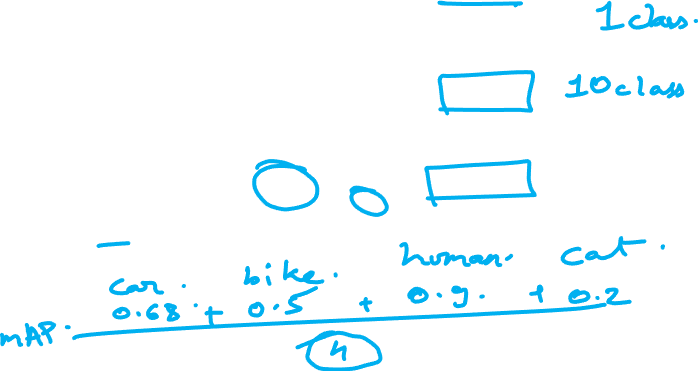 1 class.
10 class
car. bike. human. cat.
0.68 + 0.5 + 0.9. + 0.2
mAP.
4